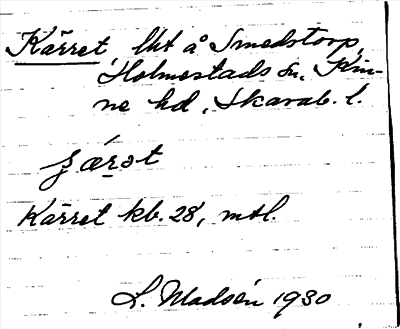 Kärret lht å Smedstorp,
Holmestads sn, Kin-
ne hd, Skarab. l.
Kärret kb. 28, mtl.
L. Madsén 1930